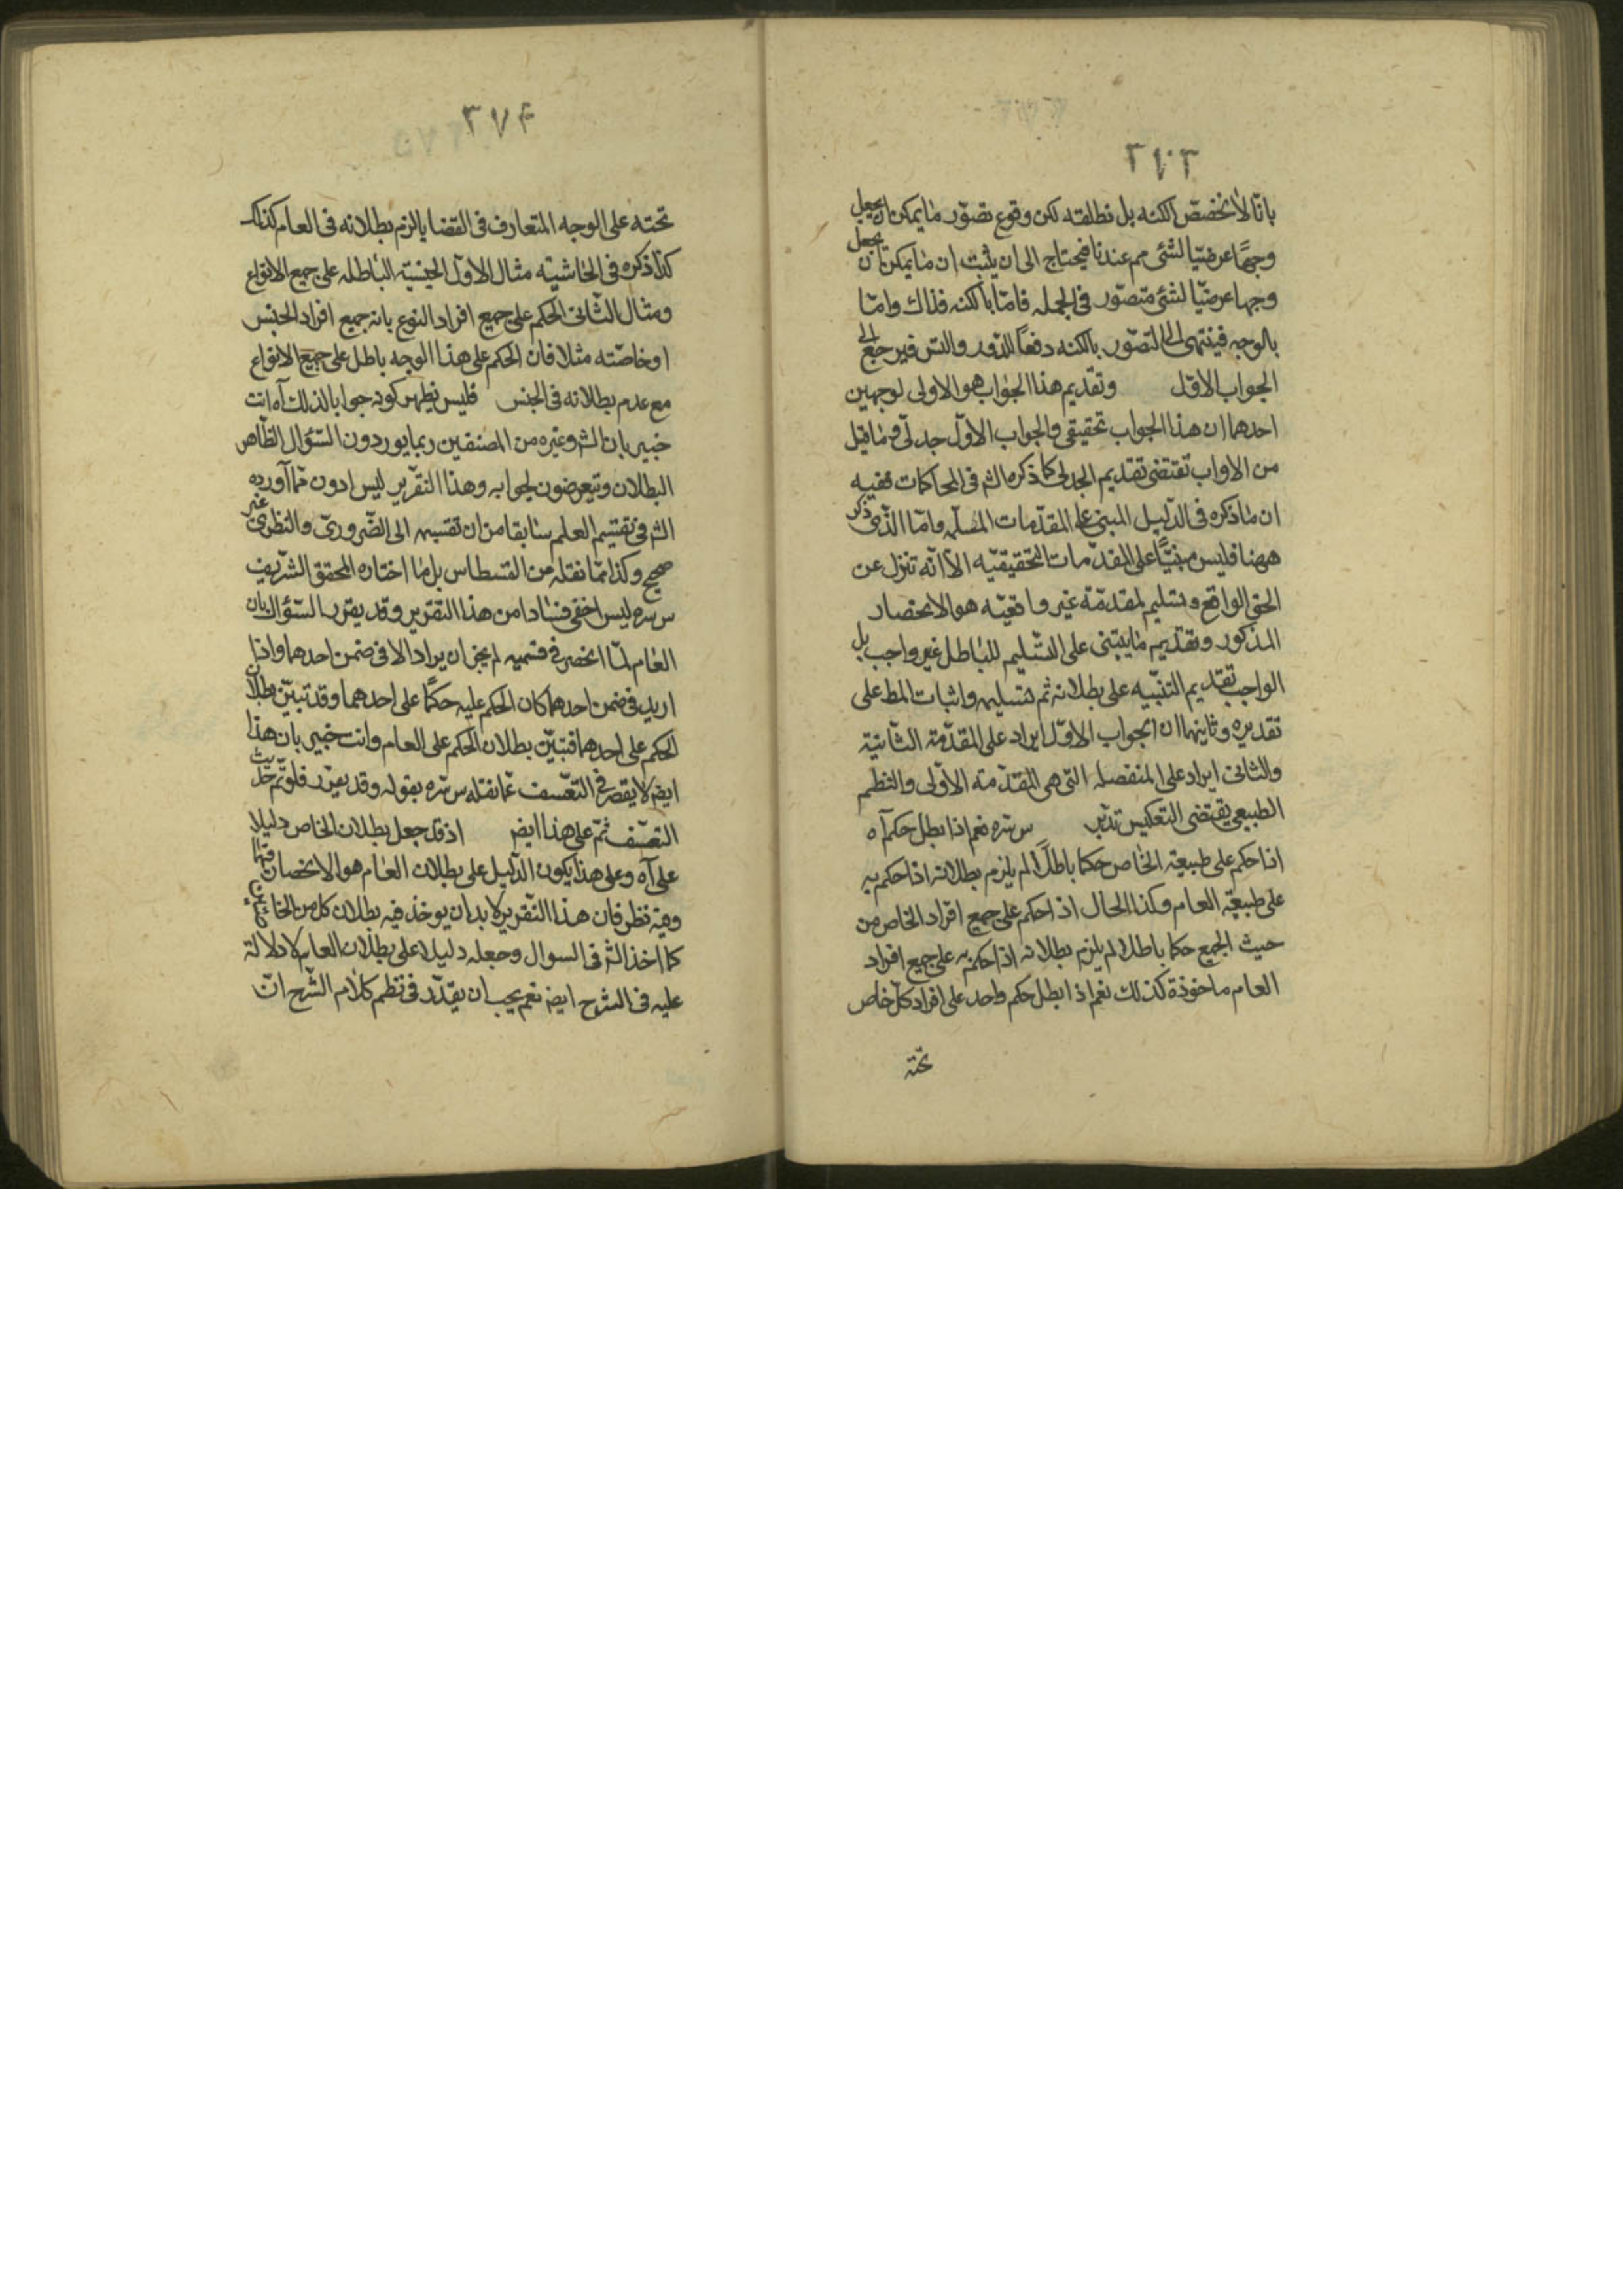 ٣٧٣
بانا لا نخصص الكنه بل نطلقه لكن وقوع تصور ما يمكن ان يجعل
وجها عرضيا لشئ مم عندنا فيحتاج الى ان يثبت ان ما يمكن ان يجعل
وجها عرضيا لشئ متصور فى الجمله فاما بالكنه فذاك واما
بالوجه فينتهى الى التصور بالكنه دفعا للدور والتس فيرجع الى
الجواب الاول وتقديم هذا الجواب هو الاولى لوجهين
احدهما ان هذا الجواب تحقيقى والجواب الاول جدلى وما قيل
من الاواب تقتضى تقديم الجدلى كما ذكره الش فى المحاكمات ففيه
ان ما ذكره فى الدليل المبنى على المقدمات المسلمه واما الذى ذكر
ههنا فليس مبنيا على المقدمات التحقيقيه الا انه تنزل عن
الحق الواقع وتسليم لمقدمة غير واقعيه هو الانحصار
المذكور وتقديم ما يبتنى على التسليم للباطل غير واجب بل
الواجب تقديم التنبيه على بطلانه ثم تسليمه واثبات المط على
تقديره وثانيهما ان الجواب الاول ايراد على المقدمة الثانية
والثانى ايراد على المنفصله التى هى المقدمه الاولى والنظم
الطبيعى يقتضى التعكيس تدبر س سره نعم اذا بطل حكم آه
اذا حكم على طبيعة الخاص حكما باطلا لم يلزم بطلانه اذا حكم به
على طبيعة العام وكذا الحال اذا حكم على جميع افراد الخاص من
حيث الجمع حكما باطلا لم يلزم بطلانه اذا حكم به على جميع افراد
العام ماخوذة كذلك نعم اذا بطل حكم واحد على افراد كل خاص
تحته
٣٧۴
تحته على الوجه المتعارف فى القضايا لزم بطلانه فى العام كذلك
كذا ذكره فى الحاشيه مثال الاول الجنسية الباطله على جميع الانواع
ومثال الثانى الحكم على جميع افراد النوع بانه جميع افراد الجنس
او خاصته مثلا فان الحكم على هذا الوجه باطل على جميع الانواع
مع عدم بطلانه فى الجنس فليس يظهر كونه جوابا لذلك آه انت
خبير بان الش وغيره من المصنفين ربما يوردون السؤال الظاهر
البطلان ويتعرضون لجوابه وهذا التقرير ليس ادون مما آورده
الش فى تقسيم العلم سابقا من ان تقسيمه الى الضرورى والنظرى غير
صحيح وكذا مما نقله من القسطاس بل ما اختاره المحقق الشريف
س سره ليس اخفى فسادا من هذا التقرير وقد يقرر السؤال بان
العام لما انحصر فى قسميه لم يجز ان يراد الا فى ضمن احدهما واذا
اريد فى ضمن احدهما كان الحكم عليه حكما على احدهما وقد تبين بطلان
الحكم على احدهما فتبين بطلان الحكم على العام وانت خبير بان هذا
ايض لا يقصر فى التعسف عما نقله س سره بقوله وقد يقرر فلو تم حديث
التعسف ثم على هذا ايض اذ قد جعل بطلان الخاص دليلا
على آه وعلى هذا يكون الدليل على بطلان العام هو الانحصار فيهما
وفيه نظر فان هذا التقرير لابد ان يوخذ فيه بطلان كل من الخاصين
كما اخذ الش فى السوال وجعله دليلا على بطلان العام لا دلالة
عليه فى الشرح ايض نعم يجب ان يقدر فى نظم كلام الشرح ان